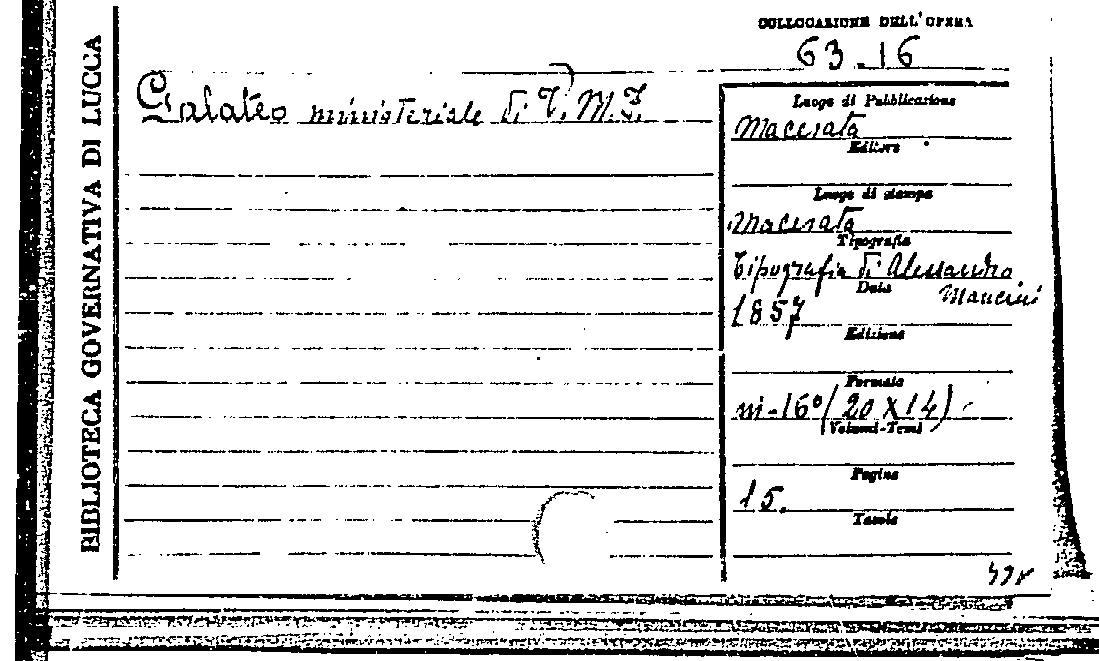 BIBLIOTECA GOVERNATIVA DI LUCCA
COLLOCAZIONE DELL'OPERA
63.16
Galateo ministeriale di T. M. I.
Luogo di Pubblicazione
Macerata
Editore
Luogo di stampa
Macerata
Tipografia
Tipografia di Alessandro
Mancini
Data
1857
Edizione
Formato
in-16º (20 X 14)
Volumi-Tomi
Pagine
15.
Tavole